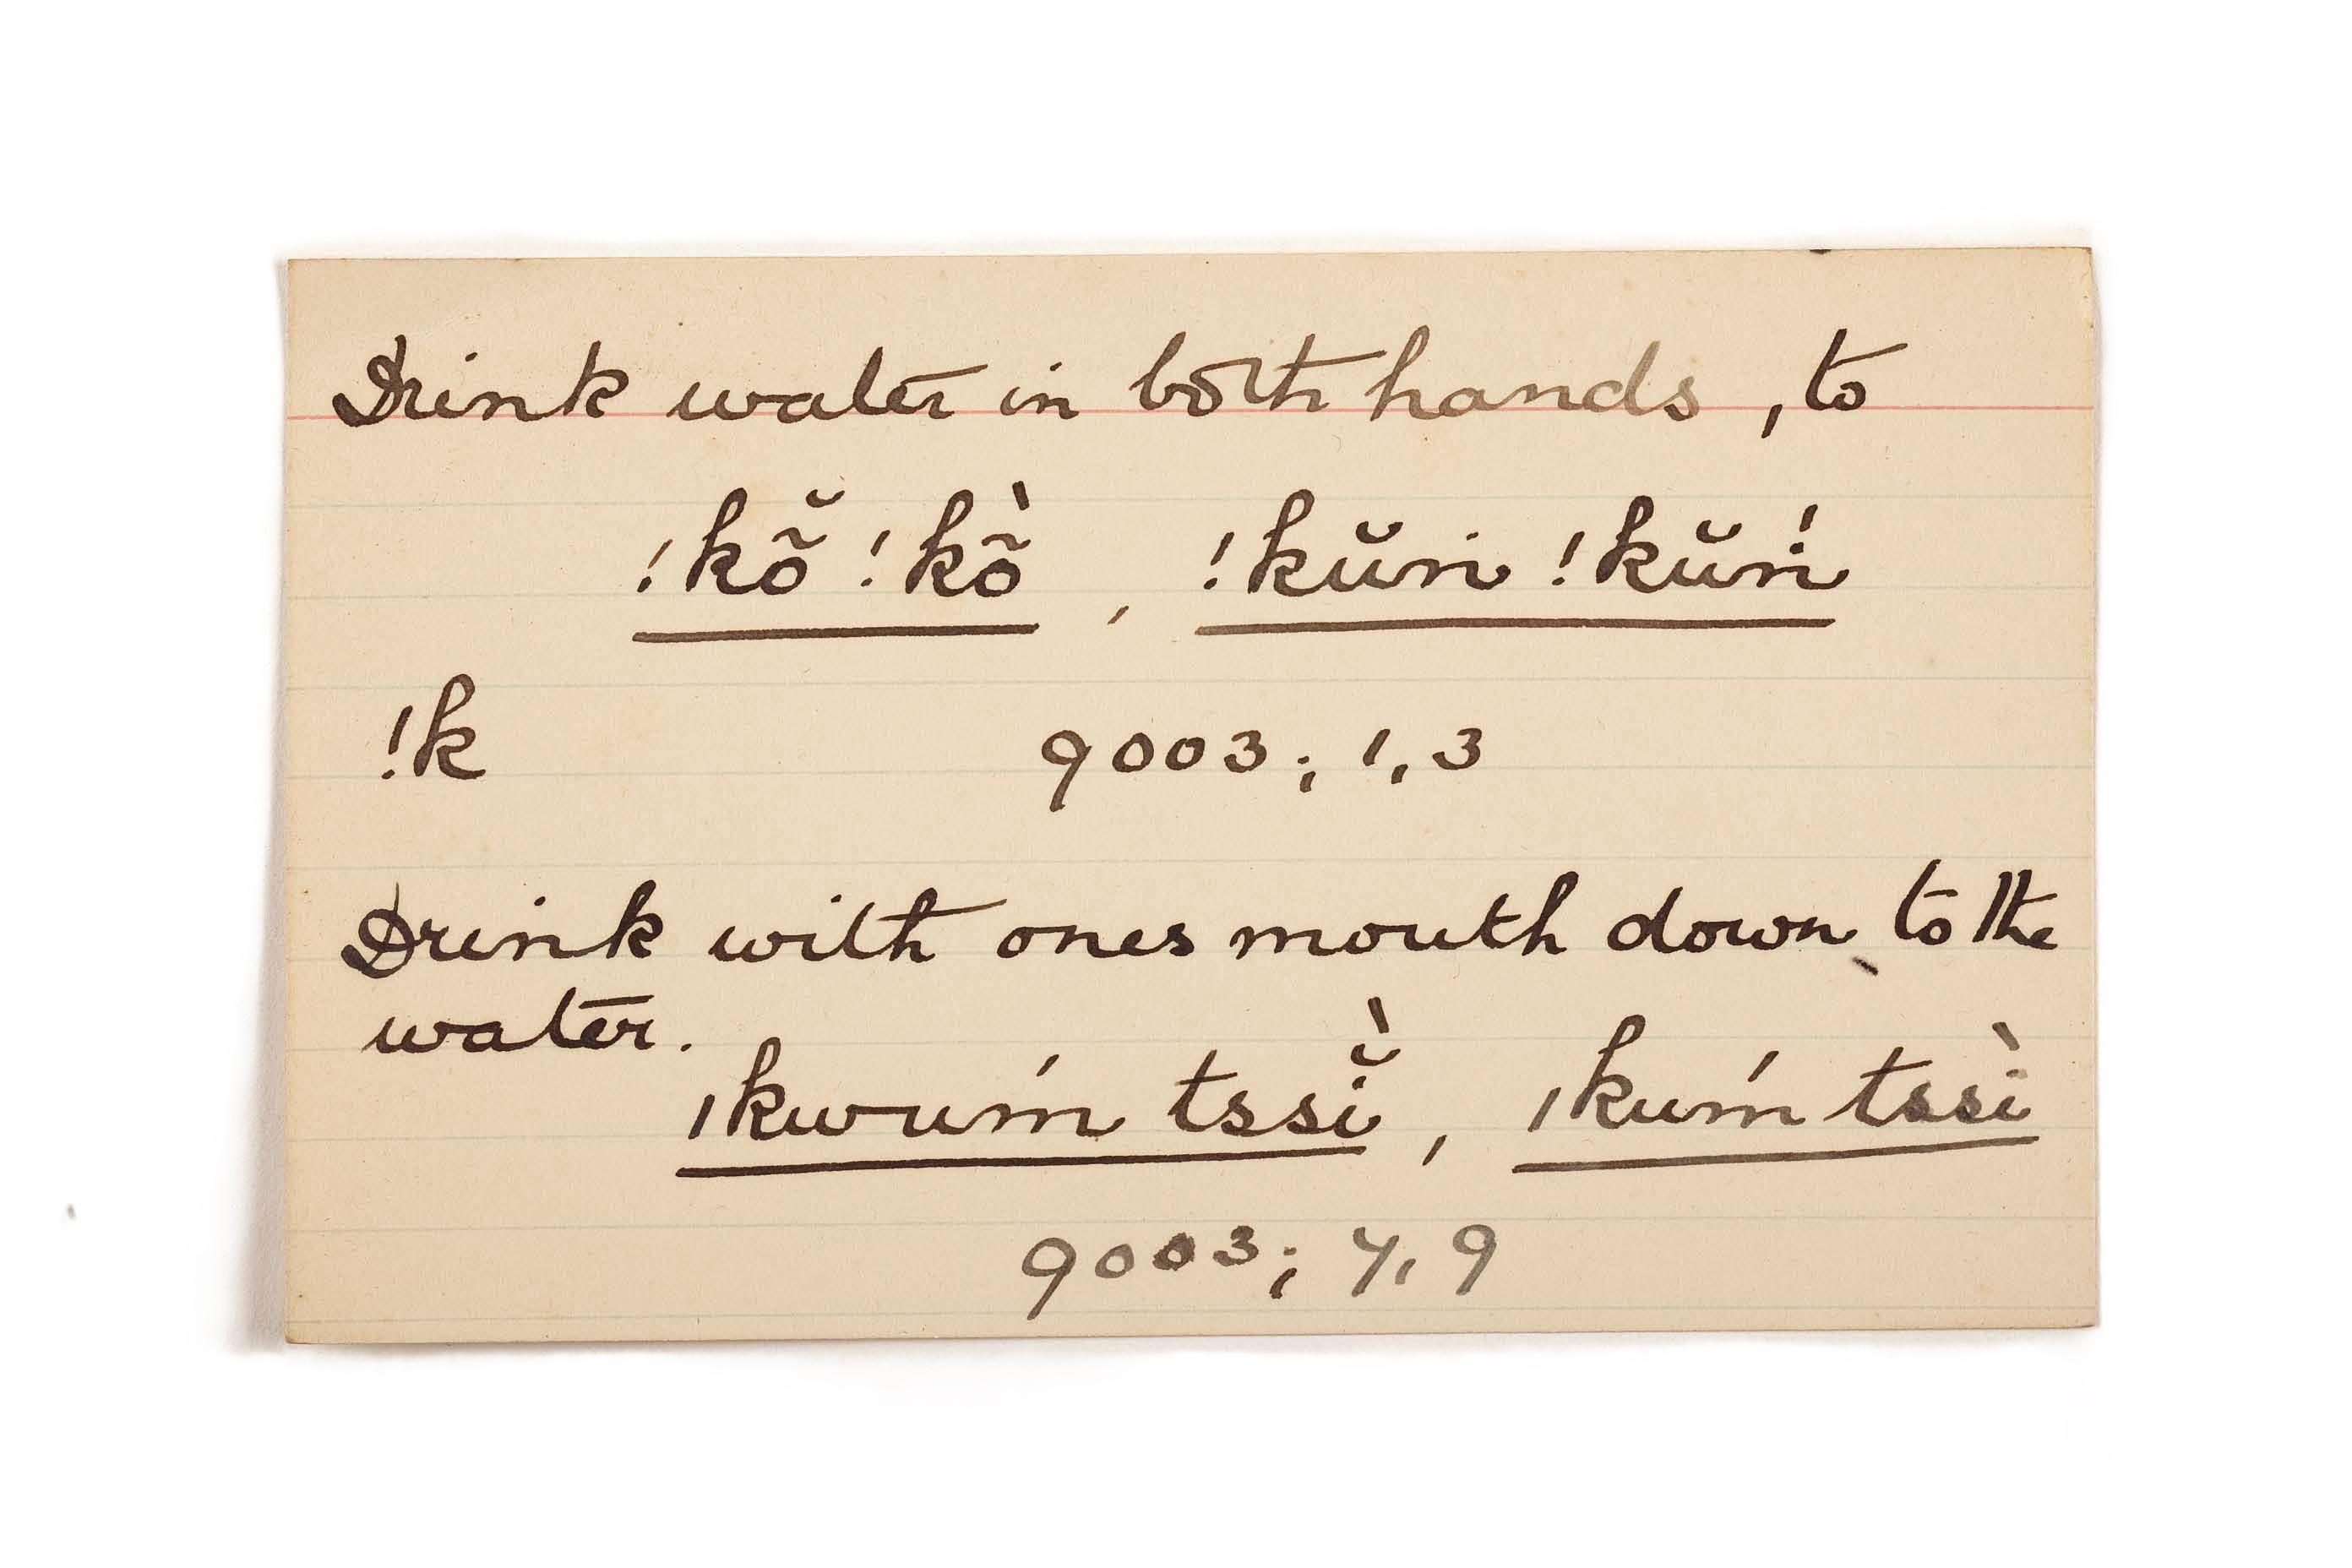 Drink water in both hands, to
!kõ̆ !kõ̀, !kŭri !kŭri̍
!k 9003; 1,3
Drink with ones mouth down to the
water.
ǀkwuḿ tssĭ̀, ǀkuḿ tssì
9003; 7,9